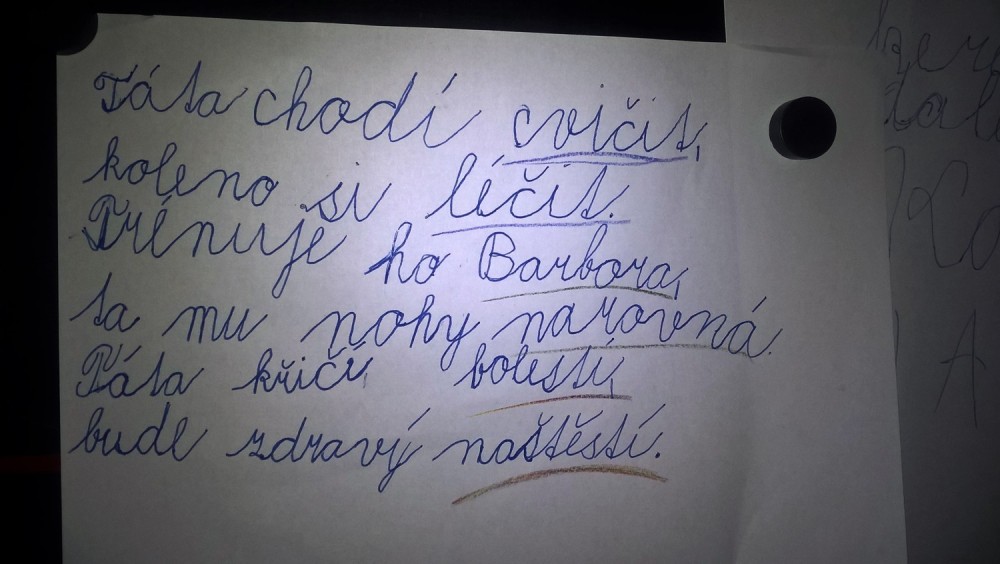 Táta chodí cvičit,
koleno si léčit.
Trénuje ho Barbora,
ta mu nohy narovná.
Táta křičí bolestí,
bude zdravý naštěstí.